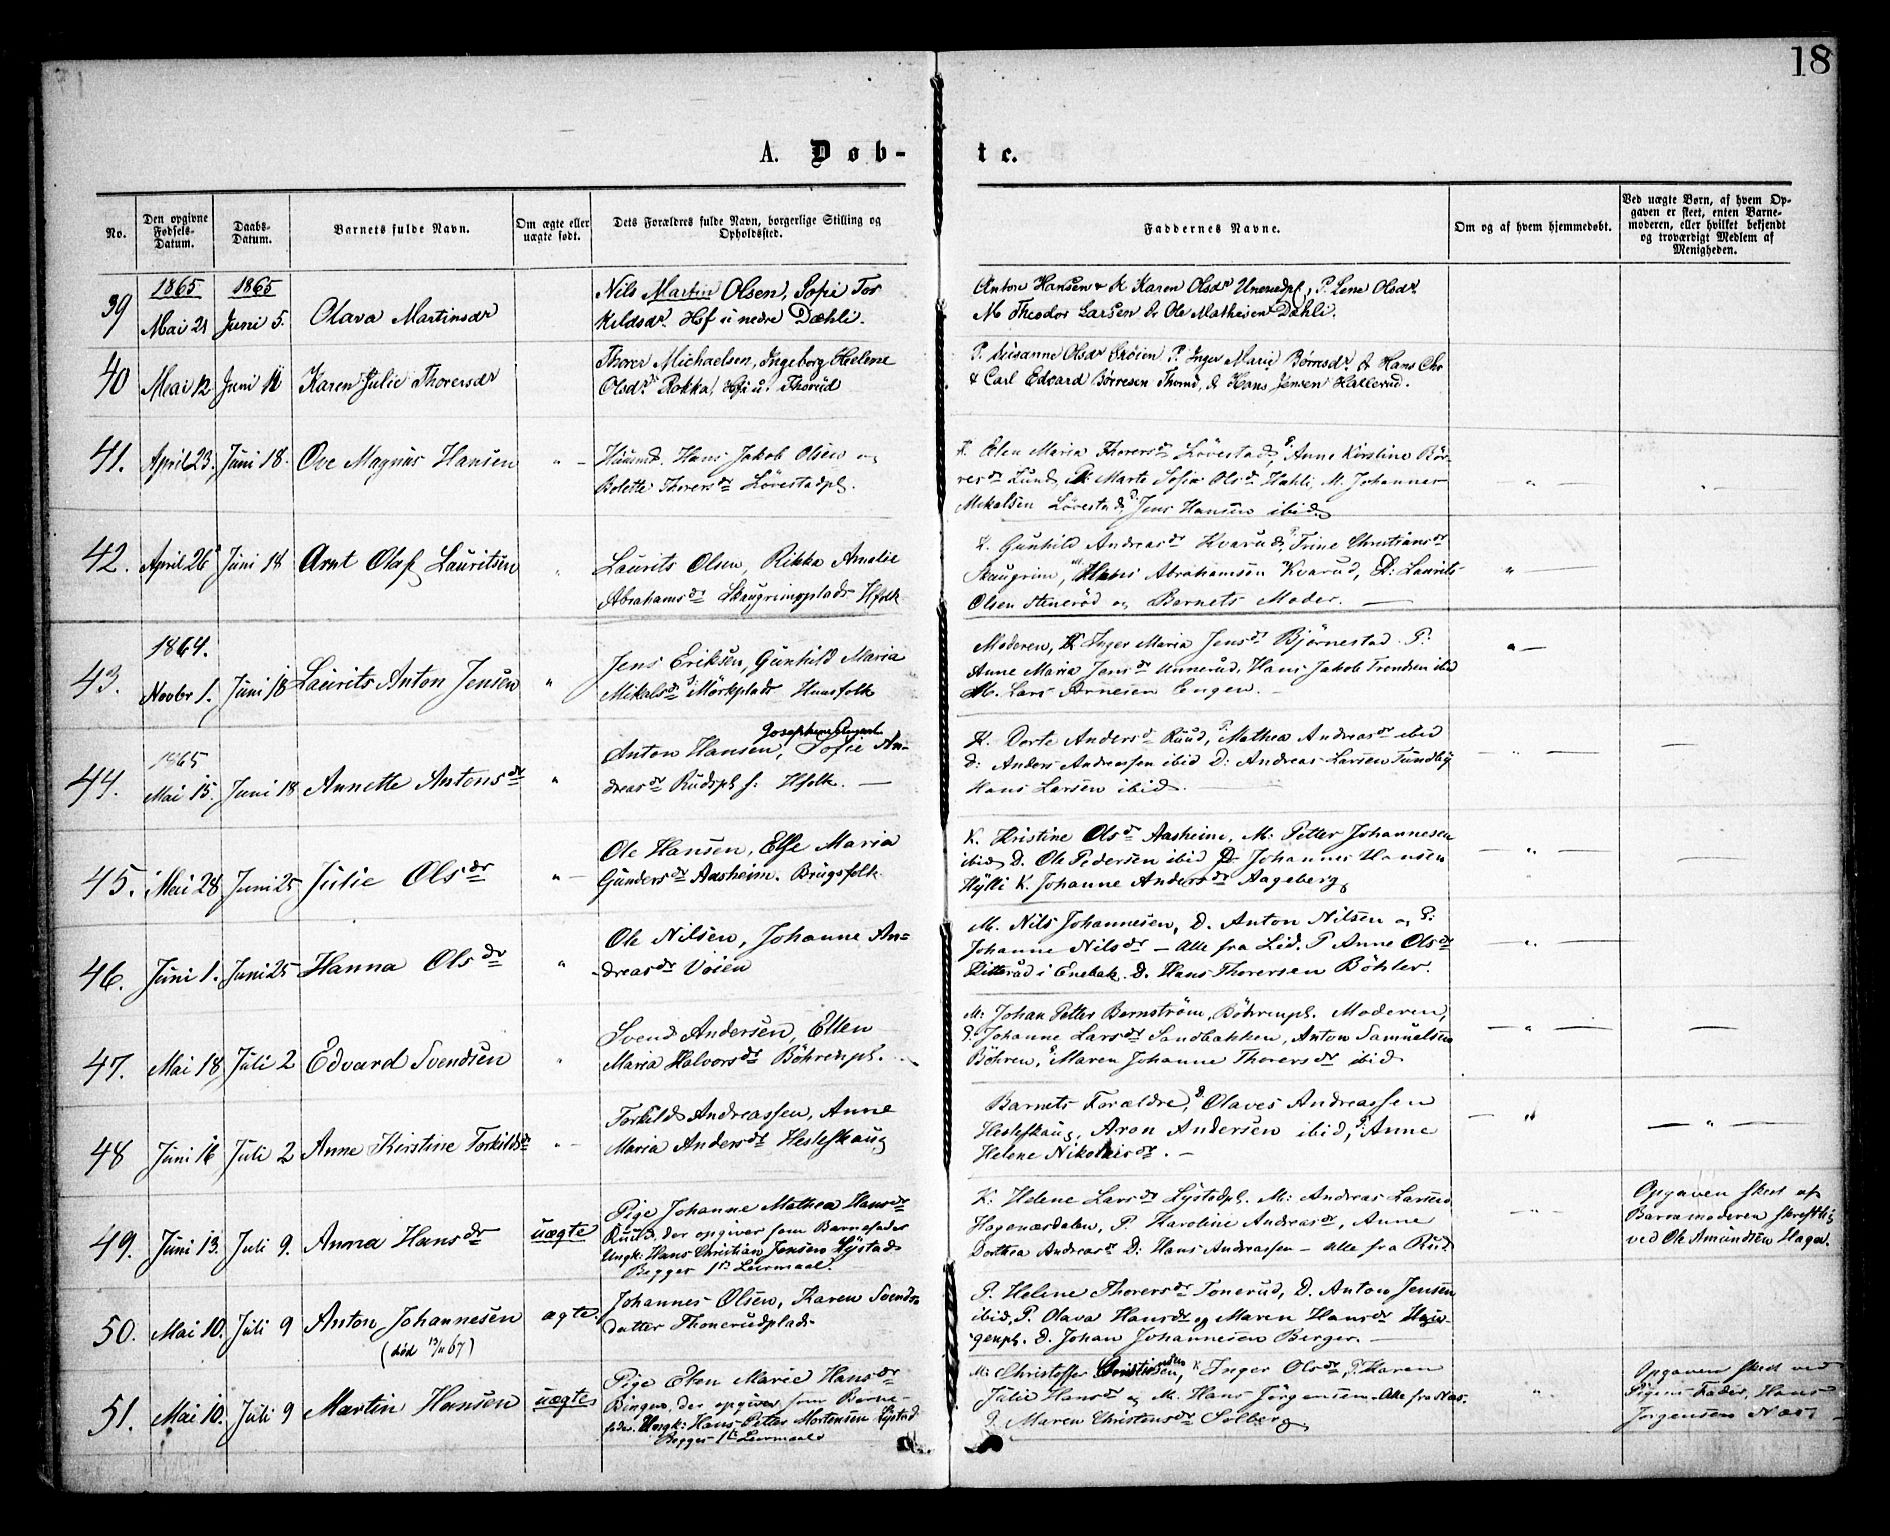 18
A. Døb- te.
No.
Den opgivne Fødsels-Datum.
Daabs-Datum.
Barnets fulde Navn.
Om ægte eller uægte født.
Dets Forældres fulde Navn, borgerlige Stilling og Opholdssted.
Faddernes Navne.
Om og af hvem hjemmedøbt.
Ved uægte Børn, af hvem Opgaven er skeet, enten Barnemoderen, eller hvilket bekjendt og troværdigt Medlem af Menigheden.
1865 1865
39 Mai 21 Juni 5. Olava Martinsdr
Nils Martin Olsen, Sofie Tor
kildsdr. Hf u nedre Dæhli.
Anton Hansen & K Karen Olsdr P. Lene Olsdr.
M Theodor Larsen & Ole Mathesen Dæhli.
40 Mai 12 Juni 11 Karen Julie Thorersdr
Thorer Michaelsen, Ingeborg Helene
Olsdr. Rokka, Hf u. Thorud
P. Susanne Olsdr P. Inger Marie Børresdr & Hans Chr
& Carl Edvard Børresen Thorud, & Hans Jensen Hallerud.
41. April 23. Juni 18. Ove Magnus Hansen " –
Huusmd. Hans Jakob Olsen og
Bolette Thorersdr Lövestadpl.
K. Elen Maria Thorersdr Lövestad, P. Anne Kirstine Bör-
resdr Lund, P: Marte Sofie Olsdr Hahli, M. Johannes
Mikalsen Lövestad, D. Jens Hansen ibid
42. April 26 Juni 18 Arnt Olaf Lauritsen "
Laurits Olsen, Rikka Amalie
Abrahamsdr Skaugrimsplads Hfolk
K. Gunhild Andreasdr Kvarud, P. Trine Christiansdr
Skaugrim, M. Hans Abrahamsen Kvarud, D: Laurits
Olsen Stenerød og Barnets Moder. —
1864.
43. Novbr 1. Juni 18 Laurits Anton Jensen "
Jens Eriksen, Gunhild Maria
Mikalsdr S: Mörkplads Huusfolk
Moderen, K Inger Maria Jensdr Björnestad P:
Anne Maria Jensdr Unnerud, Hans Jakob Trondsen ibid
M. Lars Arnesen Engen. –
1865
44. Mai 15. Juni 18 Annette Antonsdr "
Anton Hansen, Sofie An-
dreasdr Rudspl f: Hfolk. —
K. Dorte Andersdr Ruud, P. Mathea Andreasdr ibid
D: Anders Andreassen ibid D: Andreas Larsen Tundby
Hans Larsen ibid.
45. Mai 28 Juni 25 Julie Olsdr " –
Ole Hansen, Else Maria
Gundersdr Aasheim. Brugsfolk
K. Kristine Olsdr Aasheim, M: Petter Johannesen
ibid D. Ole Pedersen ibid D: Johannes Hansen
Hylli K. Johanne Andersdr Aageberg
46. Juni 1. Juni 25 Hanna Olsdr "
Ole Nilsen, Johanne An-
dreasdr Voien
M. Nils Johannesen, D. Anton Nilsen og P:
Johanne Nilsdr – Alle fra Lid. P Anne Olsdr
i Enebak. D. Hans Thorersen Böhler.
47. Mai 18 Juli 2 Edvard Svendsen "
Svend Andersen, Ellen
Maria Halvorsdr Böhrenpl.
M: Johan Petter Bernström, Böhrenpl. Moderen,
P. Johanne Larsdr Sandbakken, Anton Samuelsen
Böhren, P Maren Johanne Thorersdr ibid
48 Juni 16 Juli 2 Anne Kirstine Torkildsdr " –
Torkild Andreassen, Anne
Maria Andersdr Heslefskaug
Barnets Forældre, D. Olaves Andreassen
Heslefskaug, Aron Andersen ibid, P: Anne
Helene Nikolaisdr. –
49. Juni 13. Juli 9. Anna Hansdr uægte
Pige Johanne Mathea Hansdr
Ruud, der opgiver som Barnefader
Ungk: Hans Christian Jensen Lystad
Begges 1ste Leiermaal.
K: Helene Larsdr Lystadpl. M: Andreas Larsen
Hagenærdalen, P. Karoline Andreasdr, Anne
Dorthea Andreasdr D: Hans Andreassen – Alle fra Rud
Opgaven skeet af
Barnemoderen skreftlig
ved Ole Amundsen Hagen.
50. Mai 10. Juli 9 Anton Johannesen ægte
(død 13/11 67)
Johannes Olsen, Karen Svends-
datter Thonerudplads
P. Helene Thorersdr Tonerud, D. Anton Jensen
ibid, P. Olava Hansdr og Maren Hansdr
D. Johan Johannesen Berger. —
51. Mai 10. Juli 9 Martin Hansen uægte
Pige Elen Marie Hansdr
der opgiver som Barne-
fader. Ungk: Hans Petter Mortensen Lystad
Begges 1ste Leiermaal
M: Christoffer K Inger Olsdr, P. Karen
Julie Hansdr og M. Hans Jörgensen. Alle fra Næs.
P. Maren Christensdr Solberg
Opgaven skeet ved
Pigens Fader, Hans
Jörgensen Næs